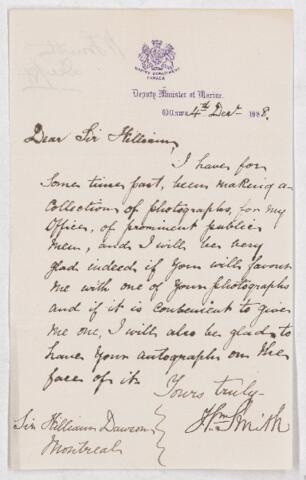 MARINE DEPARTMENT
CANADA
Deputy Minister of Marine.
Ottawa, 4th Decr. 1888.
Dear Sir William,
I have for
some time past, been making a
Collection of photographs, for my
Office, of prominent public
men, and I will be very
glad indeed if you will favour
me with one of your photographs
and if it is convenient to give
me one, I will also be glad to
have your autograph on the
face of it.
Yours truly
Wm Smith
Sir William Dawson
Montreal